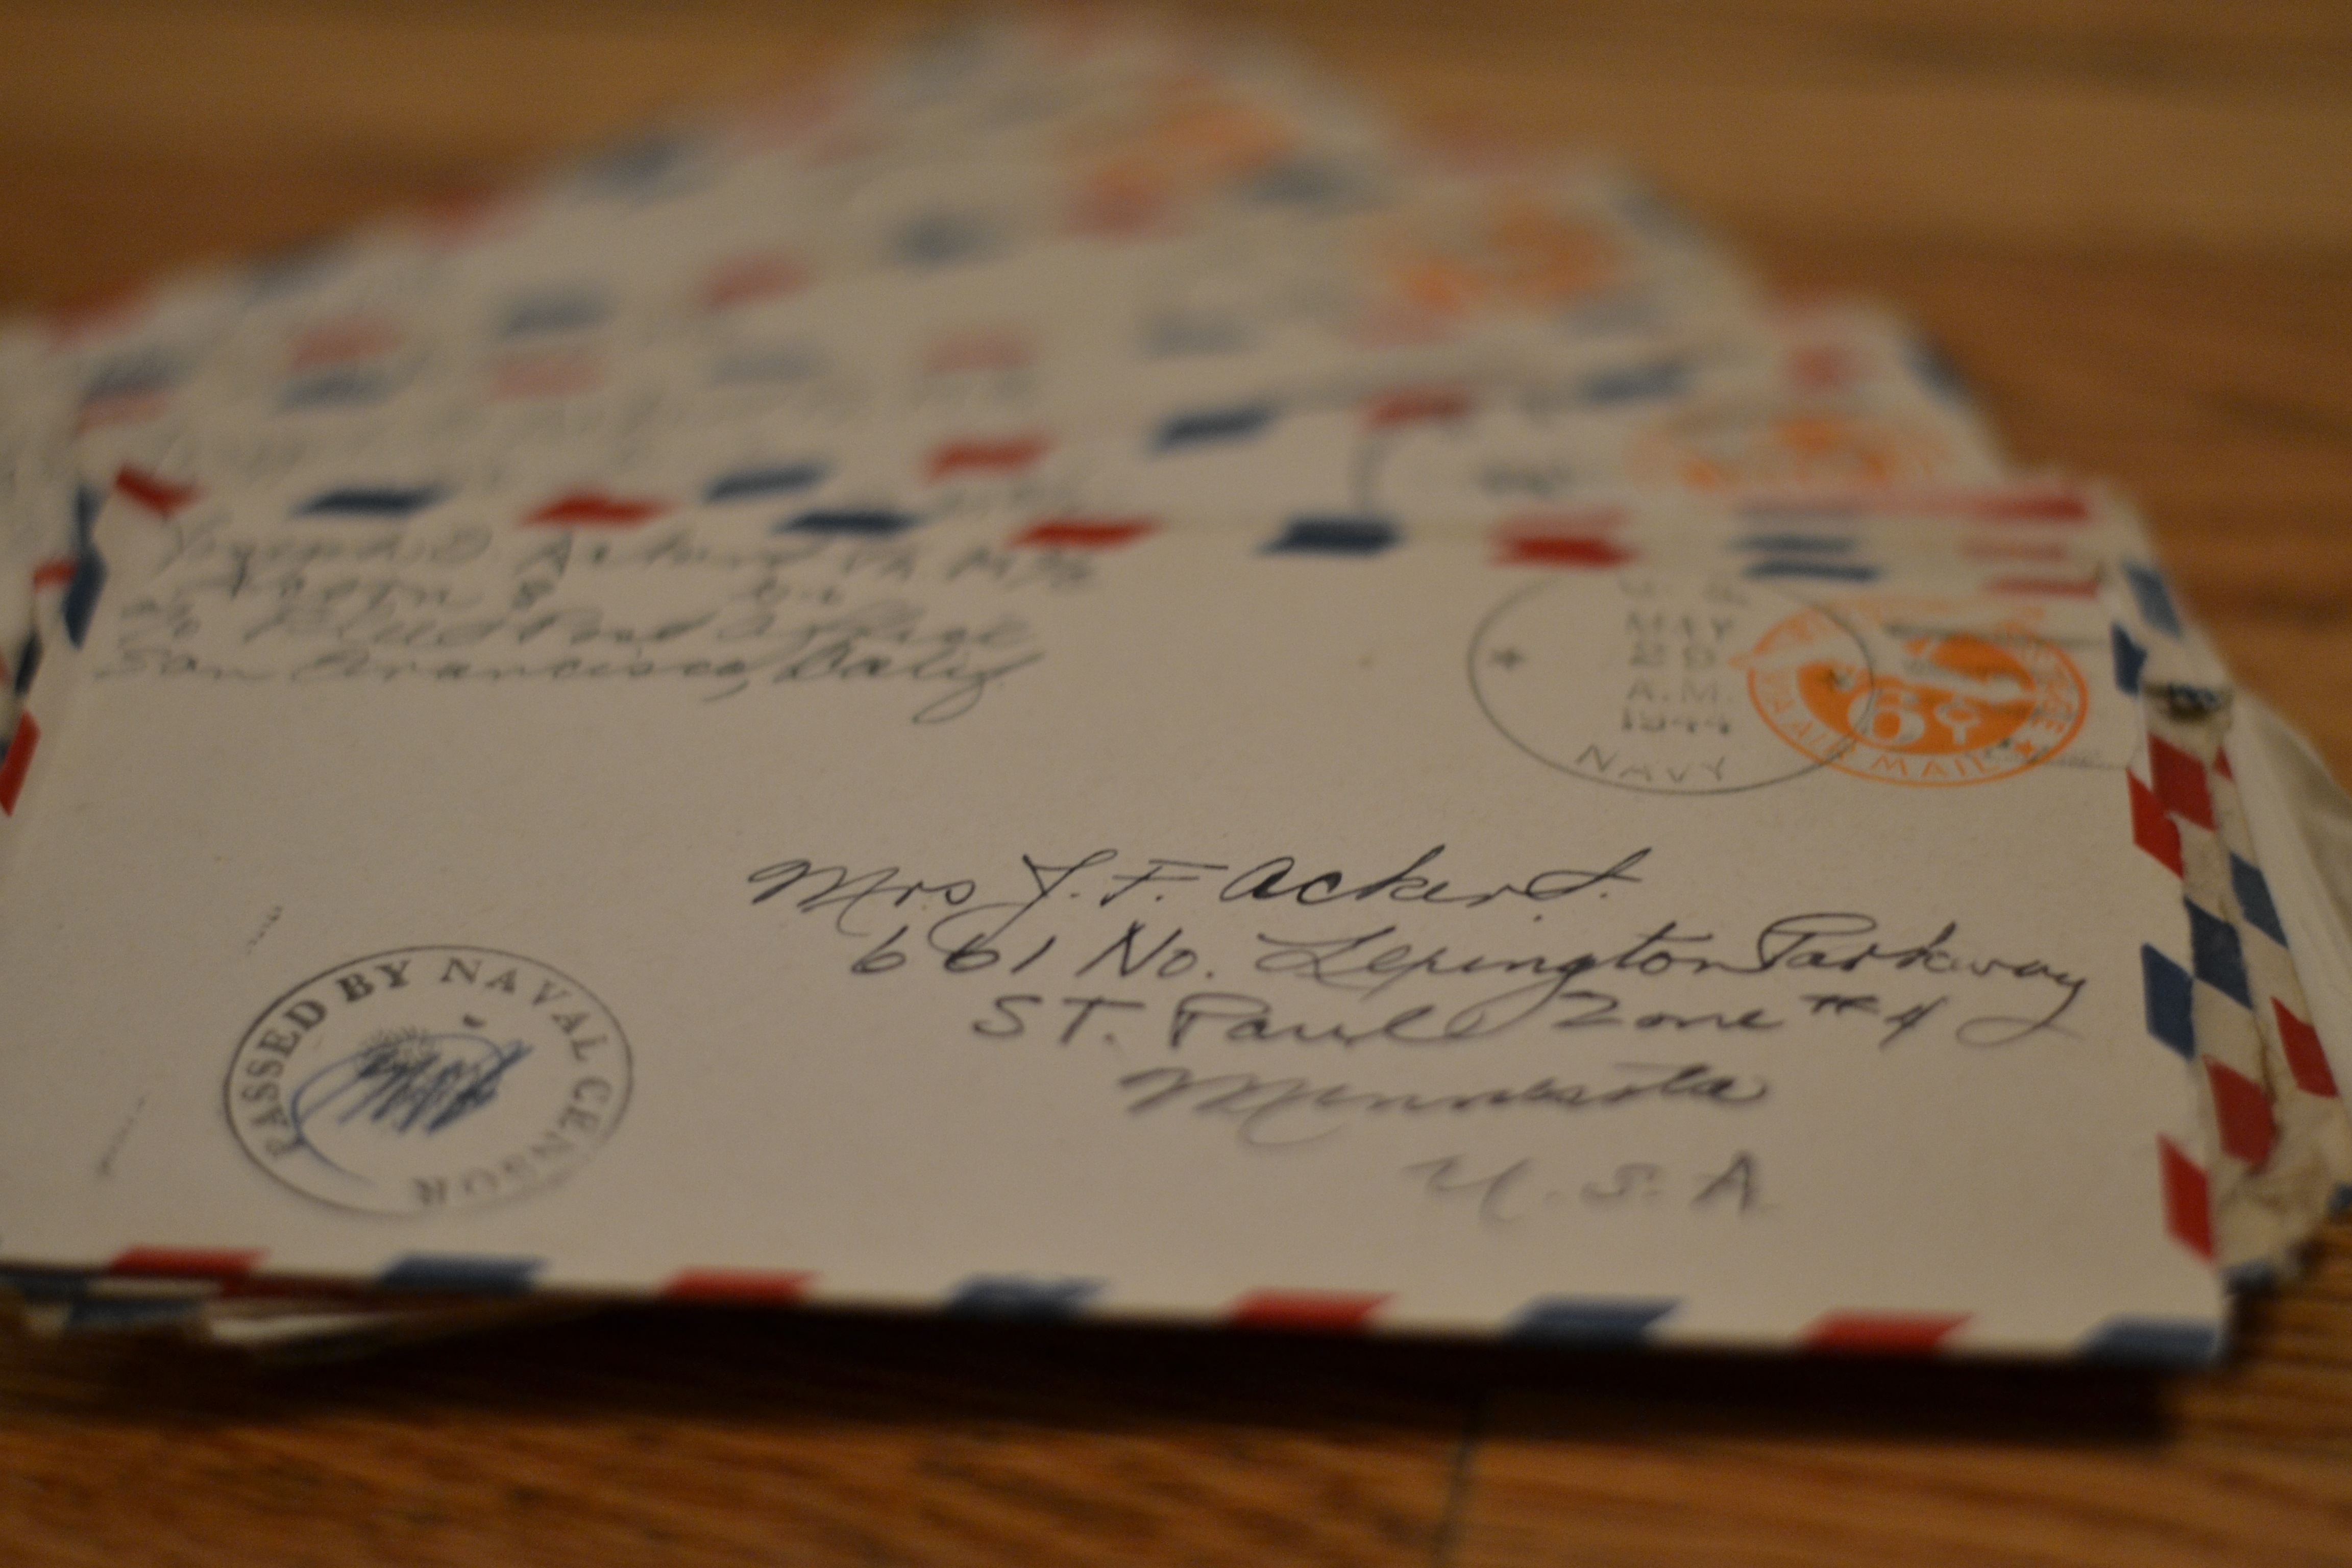 Joseph D. Ackert
c/o Fleet Post Office
San Francisco, Calif.
U.S.
MAY
29
A.M.
1944
NAVY
6¢
VIA AIR MAIL
Mrs J. F. Ackert.
661 No. Lexington Parkway
ST. Paul Zone #4
Minnesota
U.S.A
PASSED BY NAVAL CENSOR